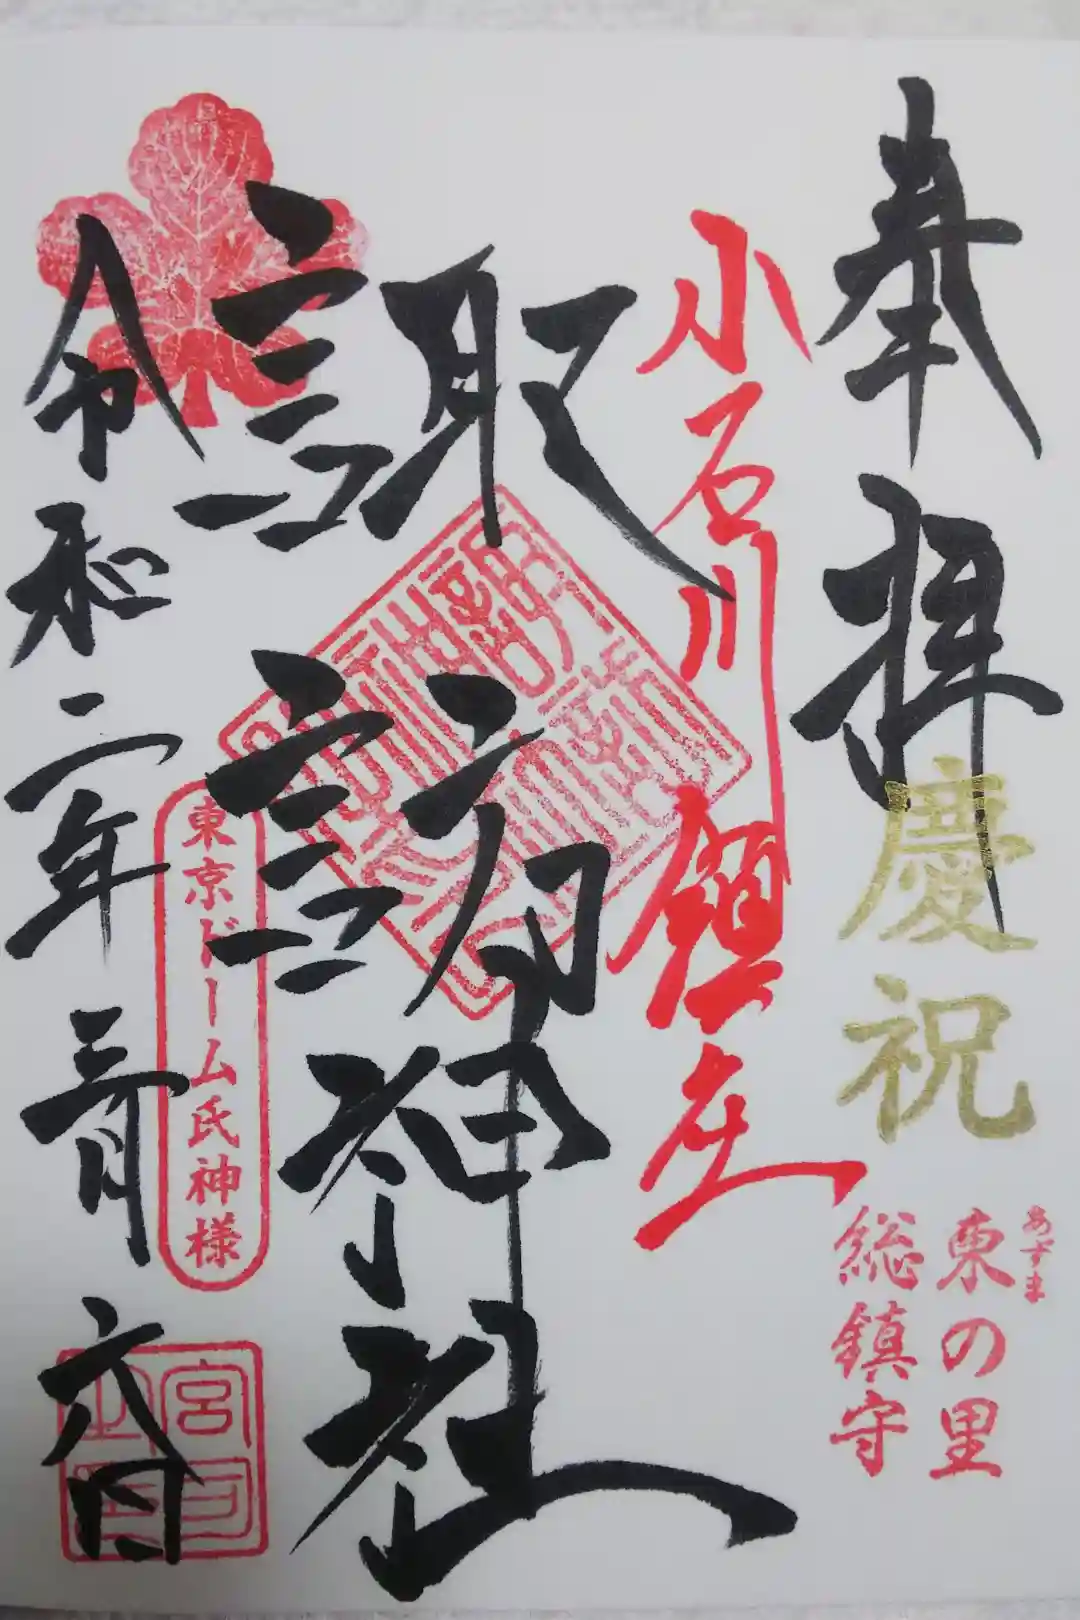 奉拝
慶祝
あずま
東の里
総鎮守
小石川鎮座
諏訪神社
令和二年三月六日
東京ドーム氏神様
宮司